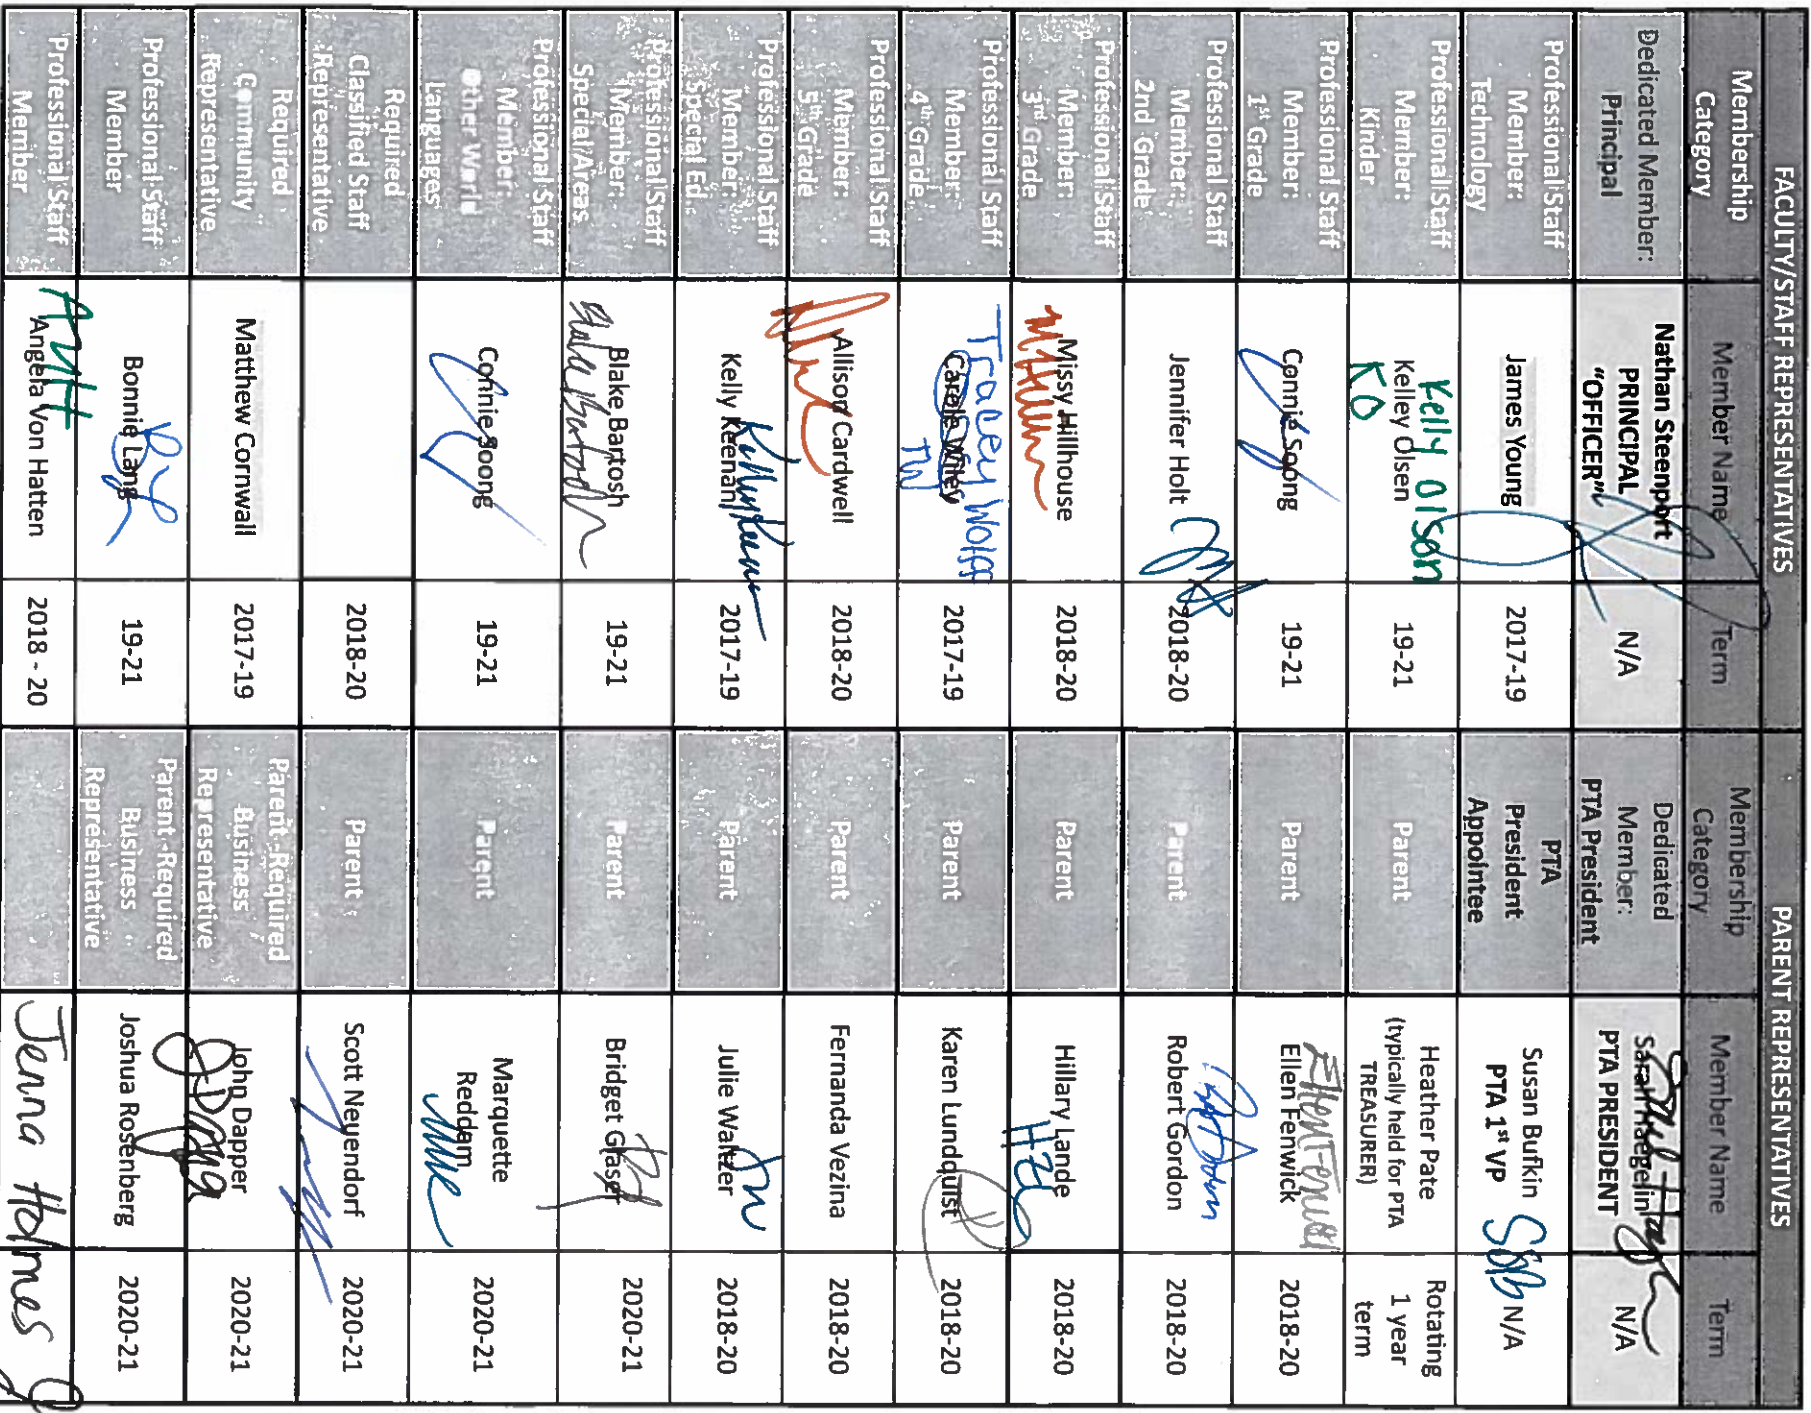 FACULTY/STAFF REPRESENTATIVES
PARENT REPRESENTATIVES
Membership
Category
Member Name
Term
Membership
Category
Member Name
Term
Dedicated Member:
Principal
Nathan Steenport
PRINCIPAL
"OFFICER"
N/A
Dedicated
Member:
PTA President
Sarah Haegelin
PTA PRESIDENT
N/A
Professional Staff
Member:
Technology
James Young
2017-19
PTA
President
Appointee
Susan Bufkin
PTA 1st VP
SBB
N/A
Professional Staff
Member:
Kinder
Kelly Olson
Kelley Olsen
KO
19-21
Parent
Heather Pate
(typically held for PTA
TREASURER)
Rotating
1 year
term
Professional Staff
Member:
1st Grade
Connie Soong
19-21
Parent
Ellen Fenwick
2018-20
Professional Staff
Member:
2nd Grade
Jennifer Holt
2018-20
Parent
Robert Gordon
2018-20
Professional Staff
Member:
3rd Grade
Missy Hillhouse
2018-20
Parent
Hillary Lande
2018-20
Professional Staff
Member:
4th Grade
Tracey Wolff
Carole Wiley
TW
2017-19
Parent
Karen Lundquist
2018-20
Professional Staff
Member:
5th Grade
Allison Cardwell
2018-20
Parent
Fernanda Vezina
2018-20
Professional Staff
Member:
Special Ed.
Kelly Keenan
2017-19
Parent
Julie Waltzer
2018-20
Professional Staff
Member:
Special Areas
Blake Bartosh
Blake Bartosh
19-21
Parent
Bridget Glaser
2020-21
Professional Staff
Member:
Other World
Languages
Connie Soong
19-21
Parent
Marquette
Reddam
2020-21
Required
Classified Staff
Representative
2018-20
Parent
Scott Neuendorf
2020-21
Required
Community
Representative
Matthew Cornwall
2017-19
Parent-Required
Business
Representative
John Dapper
2020-21
Professional Staff
Member
Bonnie Lang
19-21
Parent-Required
Business
Representative
Joshua Rosenberg
2020-21
Professional Staff
Member
Angela Von Hatten
2018 - 20
Jenna Holmes